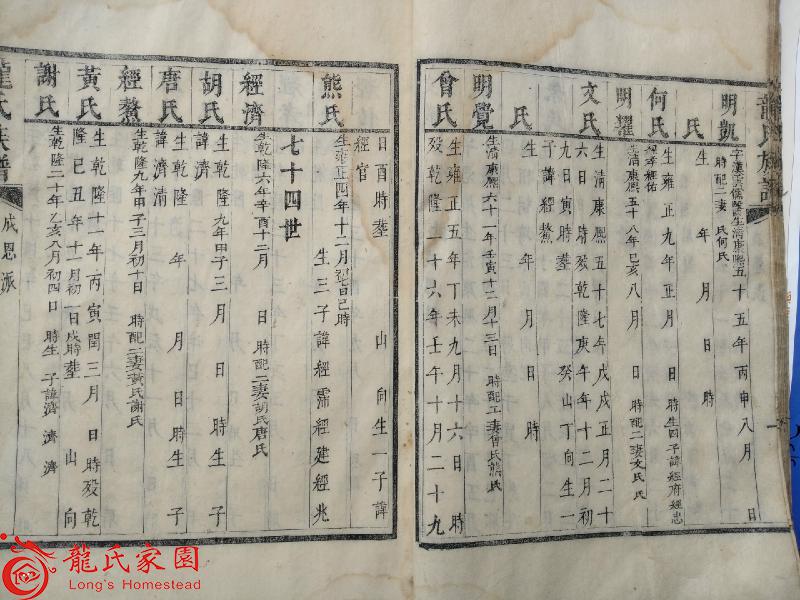 龍氏族譜
明凱 字漢雲儒醫生清康熙五十五年丙申八月 日
時配二妻 氏何氏
氏 生 年 月 日 時
何氏 生雍正九年正月 日 時生四子諱經府經忠
經孝經佑
明耀 生清康熙五十八年己亥八月 日 時配二妻文氏 氏
文氏 生清康熙五十七年戊戌正月二十
六日 時歿乾隆庚午年十二月初
九日寅時葬 癸山丁向生一
子諱經鰲
氏 生 年 月 日 時
明覺 生清康熙六十一年壬寅十二月十三日 時配二妻曾氏熊氏
曾氏 生雍正五年丁未九月十六日 時
歿乾隆二十六年壬午十月二十九
日酉時葬 山 向生一子諱
經官
熊氏 生雍正四年十二月初七日巳時
生三子諱經霈經建經兆
七十四世
經濟 生乾隆六年辛酉十二月 日 時配二妻胡氏唐氏
胡氏 生乾隆九年甲子三月 日 時生 子
諱濟
唐氏 生乾隆 年 月 日 時生 子
諱濟清
經鰲 生乾隆九年甲子三月初十日 時配二妻黃氏謝氏
黃氏 生乾隆十一年丙寅閏三月 日 時歿乾
隆己丑年十一月初一日戌時葬 山 向
謝氏 生乾隆二十年乙亥八月初四日 時生 子諱濟 濟 濟
龍氏族譜
成恩派
龍氏家園
Long's Homestead